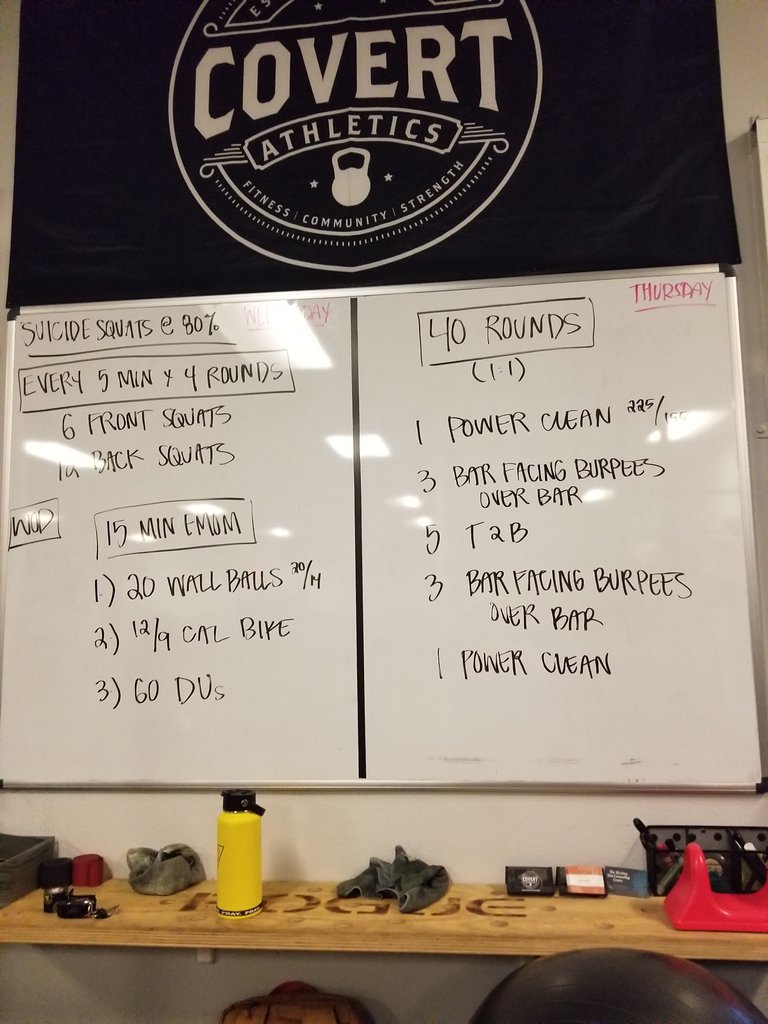 ES
COVERT
ATHLETICS
FITNESS | COMMUNITY | STRENGTH
WEDNESDAY
SUICIDE SQUATS @ 80%
EVERY 5 MIN x 4 ROUNDS
6 FRONT SQUATS
12 BACK SQUATS
WOD
15 MIN EMOM
1.) 20 WALL BALLS 20/14
2) 12/9 CAL BIKE
3) 60 DUs
THURSDAY
40 ROUNDS
(1:1)
1 POWER CLEAN 225/155
3 BAR FACING BURPEES
OVER BAR
5 T2B
3 BAR FACING BURPEES
OVER BAR
1 POWER CLEAN
ROGUE
COVERT